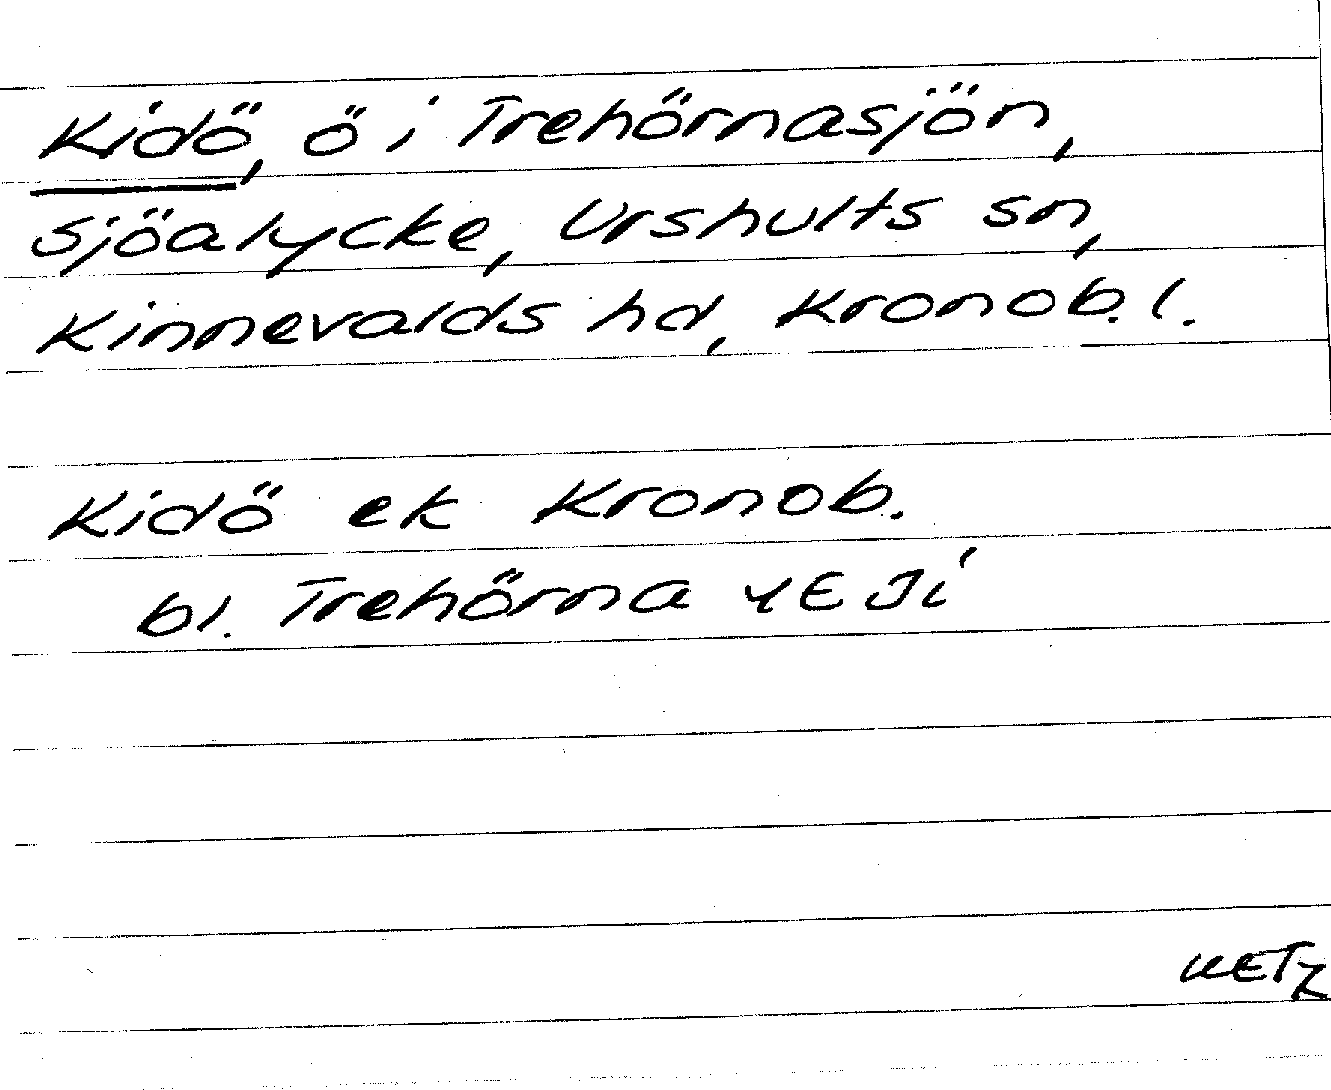 Kidö, ö i Trehörnasjön,
Sjöalycke, Urshults sn,
Kinnevalds hd, Kronob. l.
Kidö ek Kronob.
bl. Trehörna